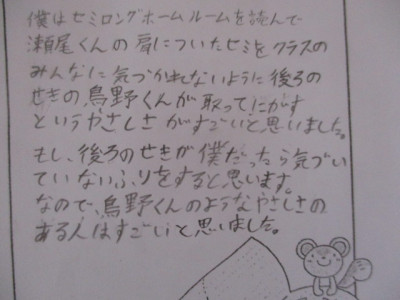 僕はセミロングホームルームを読んで
瀬尾くんの肩についたセミをクラスの
みんなに気づかせないように後ろの
せきの鳥野くんが取ってにがす
というやさしさがすごいと思いました。
もし、後ろのせきが僕だったら気づい
ていないふりをすると思います。
なので、鳥野くんのようなやさしさの
ある人はすごいと思いました。